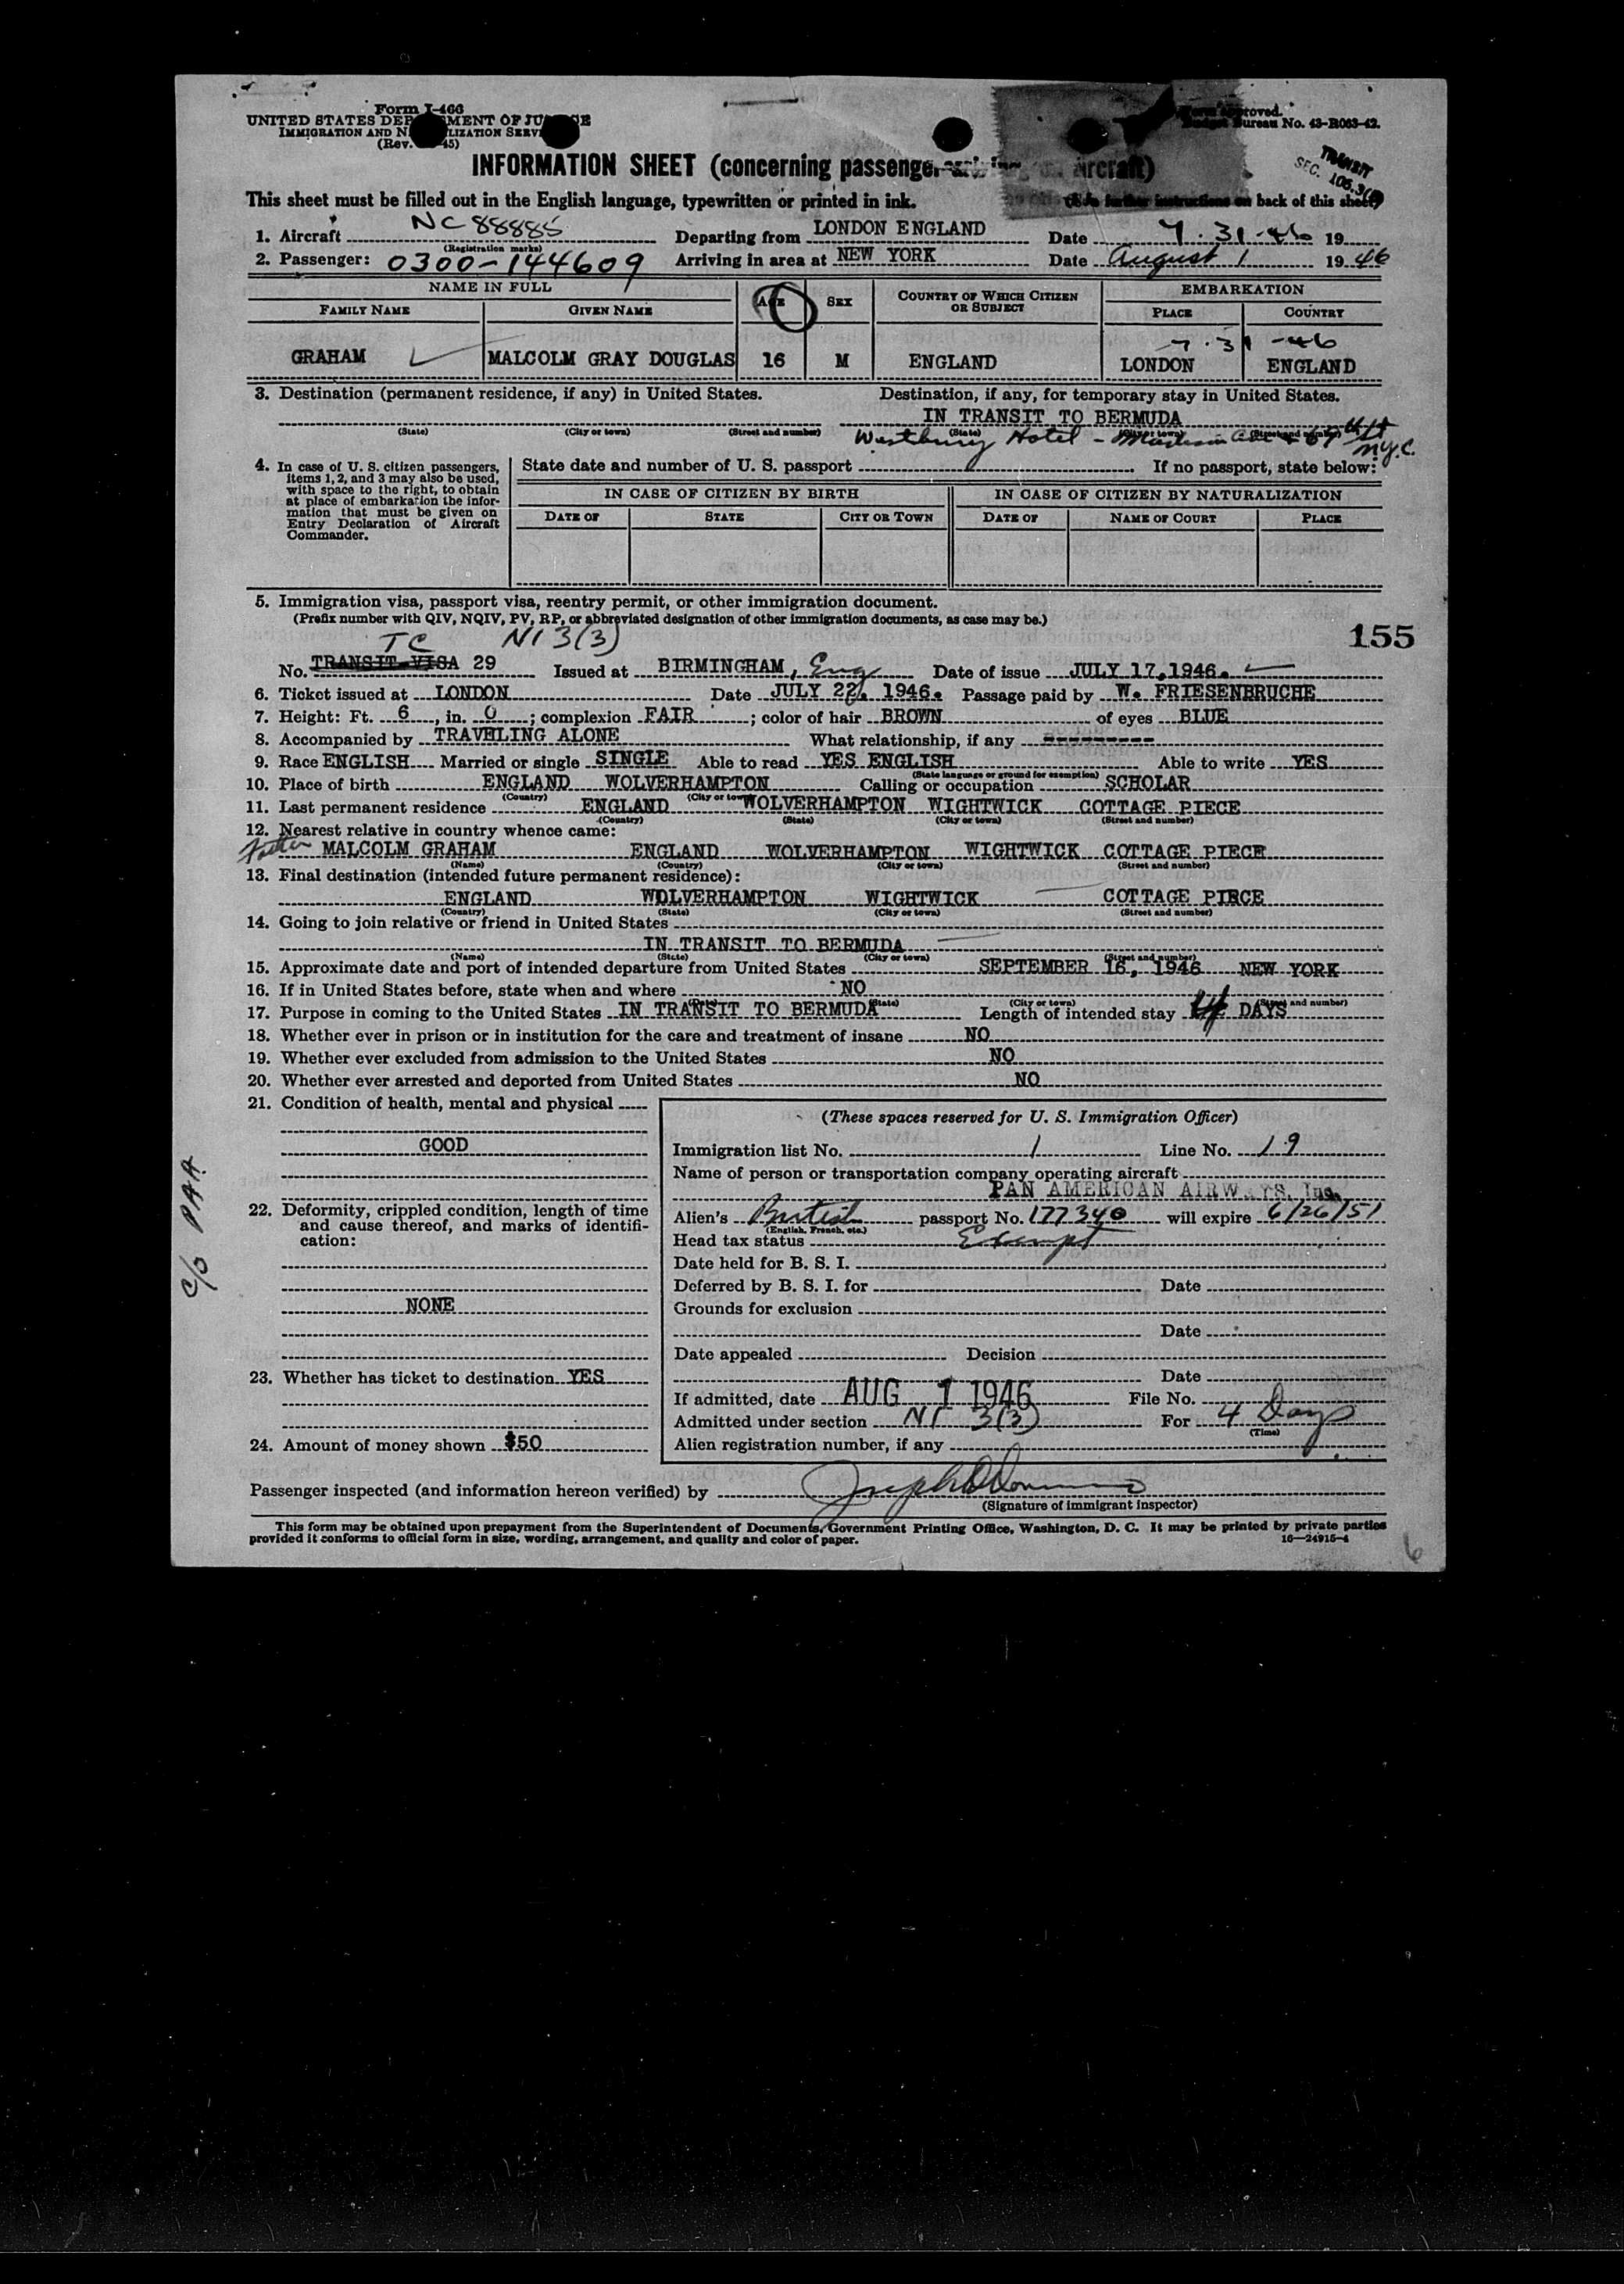 Form I-466
UNITED STATES DEP MENT OF JU
IMMIGRATION AND N LIZATION SERV
(Rev. 45)
Form Approved.
Budget Bureau No. 43-R063-42.
TRANSIT
SEC. 106.3
INFORMATION SHEET (concerning passenger aircraft)
This sheet must be filled out in the English language, typewritten or printed in ink.
(See further instructions on back of this sheet)
1. Aircraft NC 88885 Departing from LONDON ENGLAND Date 7-31-46 19
(Registration marks)
2. Passenger: 0300-144609 Arriving in area at NEW YORK Date August 1 1946
NAME IN FULL AGE SEX COUNTRY OF WHICH CITIZEN OR SUBJECT EMBARKATION
FAMILY NAME GIVEN NAME PLACE COUNTRY
7-31-46
GRAHAM MALCOLM GRAY DOUGLAS 16 M ENGLAND LONDON ENGLAND
3. Destination (permanent residence, if any) in United States. Destination, if any, for temporary stay in United States.
IN TRANSIT TO BERMUDA
(State) (City or town) (Street and number) (State) (City or town) (Street and number)
Westbury Hotel - Madison Ave + 69th St
N.Y.C.
4. In case of U. S. citizen passengers, items 1, 2, and 3 may also be used, with space to the right, to obtain at place of embarkation the information that must be given on Entry Declaration of Aircraft Commander.
State date and number of U. S. passport If no passport, state below:
IN CASE OF CITIZEN BY BIRTH IN CASE OF CITIZEN BY NATURALIZATION
DATE OF STATE CITY OR TOWN DATE OF NAME OF COURT PLACE
5. Immigration visa, passport visa, reentry permit, or other immigration document.
(Prefix number with QIV, NQIV, PV, RP, or abbreviated designation of other immigration documents, as case may be.)
155
TC NI 3(3)
No. TRANSIT VISA 29 Issued at BIRMINGHAM, Eng Date of issue JULY 17, 1946.
6. Ticket issued at LONDON Date JULY 22, 1946. Passage paid by W. FRIESENBRUCHE
7. Height: Ft. 6, in. 0; complexion FAIR; color of hair BROWN of eyes BLUE
8. Accompanied by TRAVELING ALONE What relationship, if any ---------
9. Race ENGLISH Married or single SINGLE Able to read YES ENGLISH Able to write YES
(State language or ground for exemption)
10. Place of birth ENGLAND WOLVERHAMPTON Calling or occupation SCHOLAR
(Country) (City or town)
11. Last permanent residence ENGLAND WOLVERHAMPTON WIGHTWICK COTTAGE PIECE
(Country) (State) (City or town) (Street and number)
12. Nearest relative in country whence came:
Father MALCOLM GRAHAM ENGLAND WOLVERHAMPTON WIGHTWICK COTTAGE PIECE
(Name) (Country) (City or town) (Street and number)
13. Final destination (intended future permanent residence):
ENGLAND WOLVERHAMPTON WIGHTWICK COTTAGE PIECE
(Country) (State) (City or town) (Street and number)
14. Going to join relative or friend in United States
IN TRANSIT TO BERMUDA
(Name) (State) (City or town) (Street and number)
15. Approximate date and port of intended departure from United States SEPTEMBER 16, 1946 NEW YORK
16. If in United States before, state when and where NO
(Date) (State) (City or town) (Street and number)
17. Purpose in coming to the United States IN TRANSIT TO BERMUDA Length of intended stay 4 DAYS
18. Whether ever in prison or in institution for the care and treatment of insane NO
19. Whether ever excluded from admission to the United States NO
20. Whether ever arrested and deported from United States NO
21. Condition of health, mental and physical
GOOD
22. Deformity, crippled condition, length of time and cause thereof, and marks of identification:
NONE
23. Whether has ticket to destination YES
24. Amount of money shown $50
c/o PAA
(These spaces reserved for U. S. Immigration Officer)
Immigration list No. 1 Line No. 19
Name of person or transportation company operating aircraft
PAN AMERICAN AIRWAYS, Inc.
Alien's British passport No. 177340 will expire 6/26/51
(English, French, etc.)
Head tax status Exempt
Date held for B. S. I.
Deferred by B. S. I. for Date
Grounds for exclusion
Date
Date appealed Decision
Date
If admitted, date AUG 1 1946 File No.
Admitted under section NI 3(3) For 4 Days
(Time)
Alien registration number, if any
Passenger inspected (and information hereon verified) by
(Signature of immigrant inspector)
This form may be obtained upon prepayment from the Superintendent of Documents, Government Printing Office, Washington, D. C. It may be printed by private parties
provided it conforms to official form in size, wording, arrangement, and quality and color of paper. 16—24915-4
6